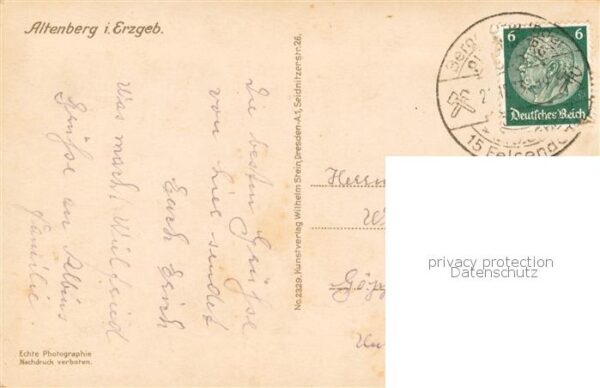 Altenberg i. Erzgeb.
Die besten Grüsse
von hier sendet
Euch Erich
Was macht Wilfried
Grüsse an Albins
Familie.
No. 2329. Kunstverlag Wilhelm Stein, Dresden-A.1, Seidnitzerstr. 26.
6 6
Deutsches Reich
15 Felsen
Herrn
privacy protection
Datenschutz
Echte Photographie
Nachdruck verboten.